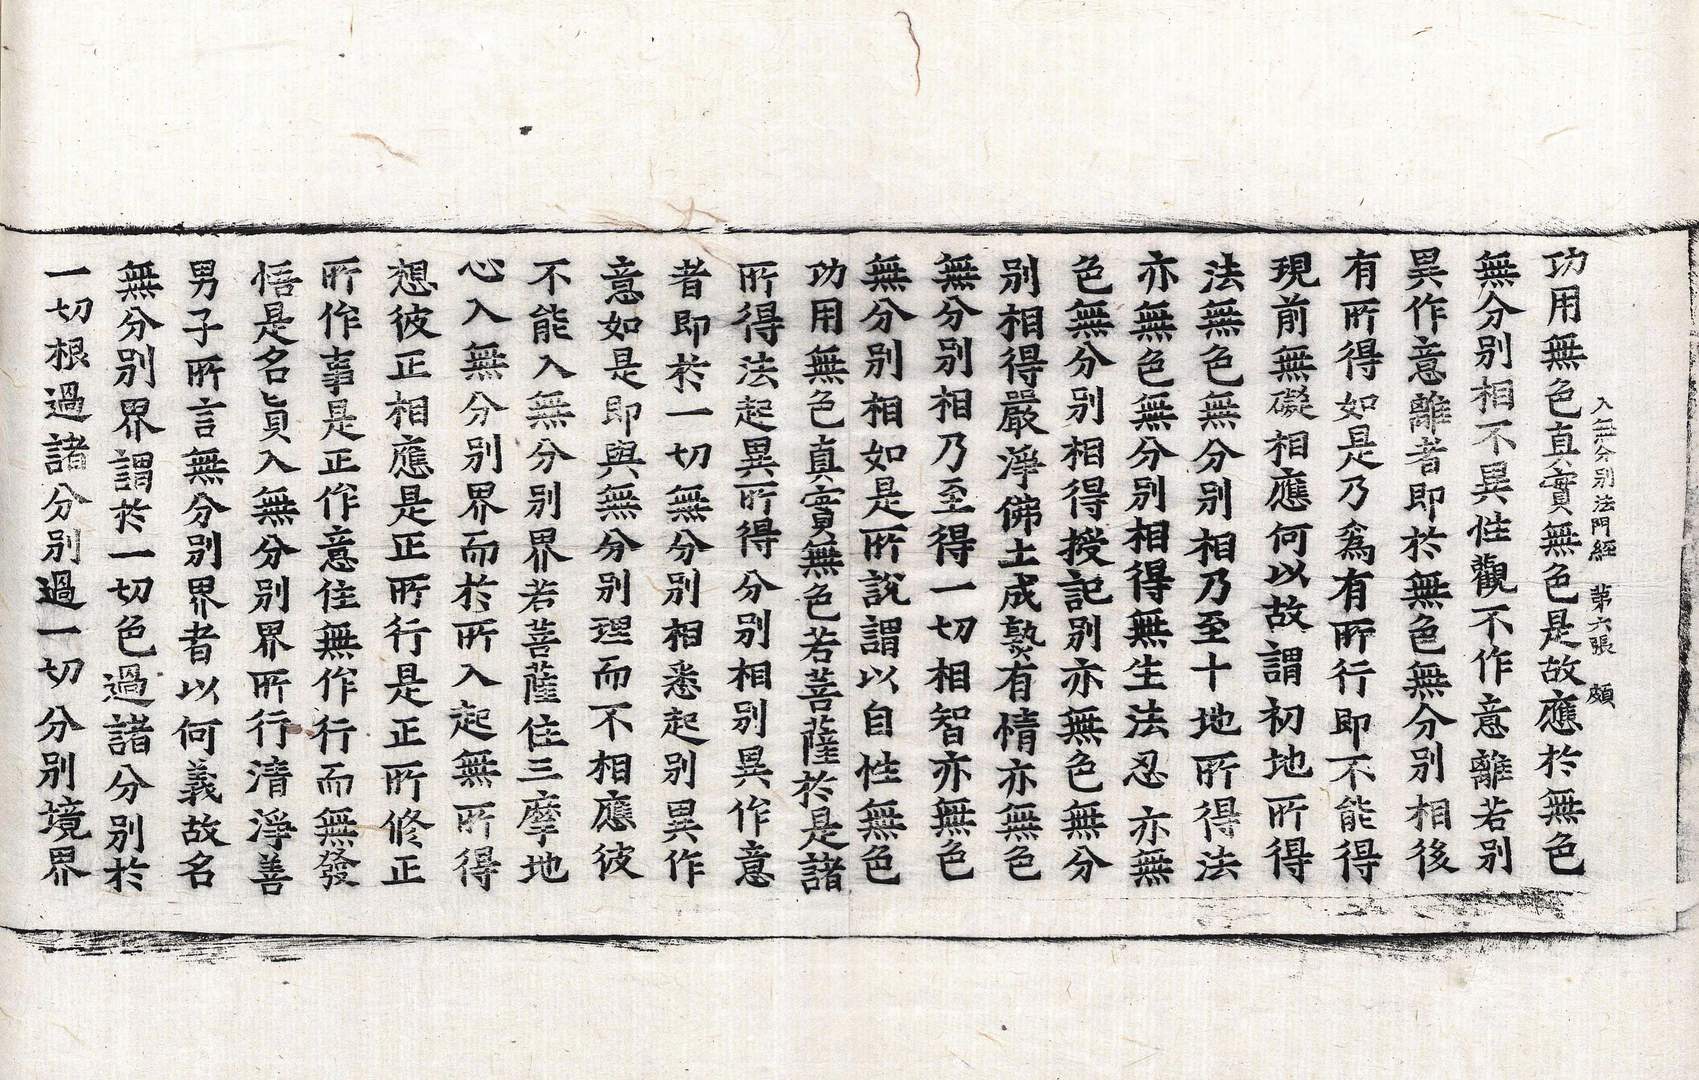 入無分別法門經 第六張 頗
功用無色真實無色是故應於無色
無分別相不異性觀不作意離若別
異作意離者即於無色無分別相後
有所得如是乃爲有所行即不能得
現前無礙相應何以故謂初地所得
法無色無分別相乃至十地所得法
亦無色無分別相得無生法忍亦無
色無分別相得授記別亦無色無分
別相得嚴淨佛土成熟有情亦無色
無分別相乃至得一切相智亦無色
無分別相如是所說謂以自性無色
功用無色真實無色若菩薩於是諸
所得法起異所得分別相別異作意
者即於一切無分別相悉起別異作
意如是即與無分別理而不相應彼
不能入無分別界若菩薩住三摩地
心入無分別界而於所入起無所得
想彼正相應是正所行是正所修正
所作事是正作意住無作行而無發
悟是名真入無分別界所行清淨善
男子所言無分別界者以何義故名
無分別界謂於一切色過諸分別於
一切根過諸分別過一切分別境界